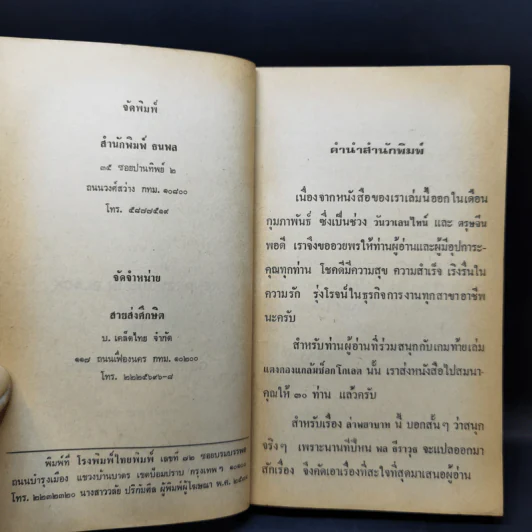 จัดพิมพ์
สำนักพิมพ์ ธนพล
๓๕ ซอยปานทิพย์ ๒
ถนนวงศ์สว่าง กทม. ๑๐๘๐๐
โทร. ๕๘๗๗๕๑๙
จัดจำหน่าย
สายส่งศึกษิต
บ. เคล็ดไทย จำกัด
๑๑๗ ถนนเฟื่องนคร กทม. ๑๐๒๐๐
โทร. ๒๒๒๕๖๙๖-๘
พิมพ์ที่ โรงพิมพ์ไทยพิมพ์ เลขที่ ๗๒
ถนนบำรุงเมือง แขวงบ้านบาตร เขตป้อมปราบ กรุงเทพฯ
โทร. ๒๒๓๒๓๒๐ นางสาววลัย ปริกัมศีล ผู้พิมพ์ผู้โฆษณา พ.ศ.
คำนำสำนักพิมพ์
เนื่องจากหนังสือของเราเล่มนี้ออกในเดือน
กุมภาพันธ์ ซึ่งเป็นช่วง วันวาเลนไทน์ และ ตรุษจีน
พอดี เราจึงขออวยพรให้ท่านผู้อ่านและผู้มีอุปการะ-
คุณทุกท่าน โชคดีมีความสุข ความสำเร็จ เริงรื่นใน
ความรัก รุ่งโรจน์ในธุรกิจการงานทุกสาขาอาชีพ
นะครับ
สำหรับท่านผู้อ่านที่ร่วมสนุกกับเกมท้ายเล่ม
แดงกองแกลัมช็อกโกเลต นั้น เราส่งหนังสือไปสมนา-
คุณให้ ๓๐ ท่าน แล้วครับ
สำหรับเรื่อง ล่าพยาบาท นี้ บอกสั้นๆ ว่าสนุก
จริงๆ เพราะนานทีปีหน พล ธีราวุธ จะแปลออกมา
สักเรื่อง จึงคัดเอาเรื่องที่สะใจที่สุดมาเสนอผู้อ่าน